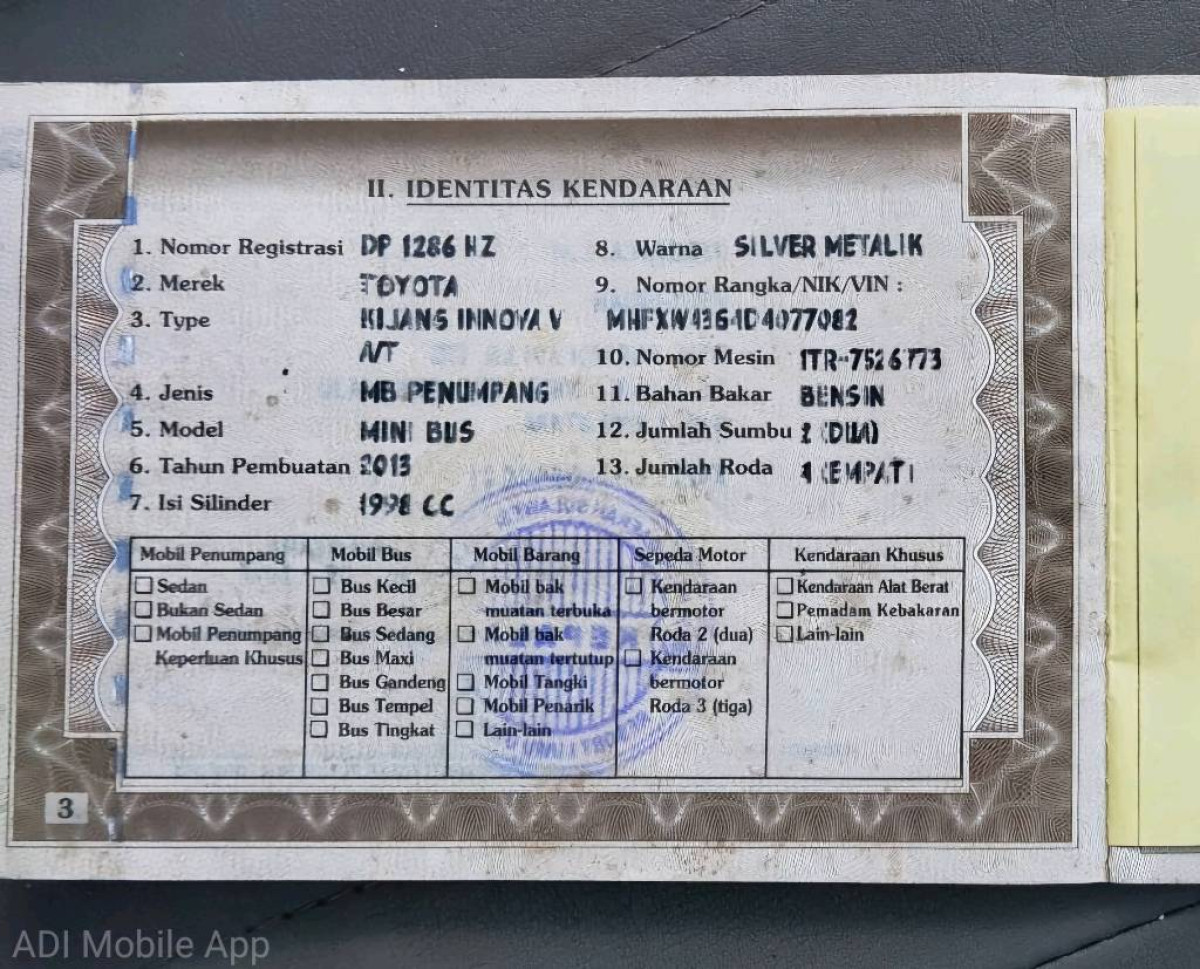 II. IDENTITAS KENDARAAN
1. Nomor Registrasi DP 1286 HZ
2. Merek TOYOTA
3. Type KIJANG INNOVA V
A/T
4. Jenis MB PENUMPANG
5. Model MINI BUS
6. Tahun Pembuatan 2013
7. Isi Silinder 1998 CC
8. Warna SILVER METALIK
9. Nomor Rangka/NIK/VIN :
MHFXW43G4D4077082
10. Nomor Mesin 1TR-7526773
11. Bahan Bakar BENSIN
12. Jumlah Sumbu 2 (DUA)
13. Jumlah Roda 4 (EMPAT)
Mobil Penumpang
Sedan
Bukan Sedan
Mobil Penumpang
Keperluan Khusus
Mobil Bus
Bus Kecil
Bus Besar
Bus Sedang
Bus Maxi
Bus Gandeng
Bus Tempel
Bus Tingkat
Mobil Barang
Mobil bak
muatan terbuka
Mobil bak
muatan tertutup
Mobil Tangki
Mobil Penarik
Lain-lain
Sepeda Motor
Kendaraan
bermotor
Roda 2 (dua)
Kendaraan
bermotor
Roda 3 (tiga)
Kendaraan Khusus
Kendaraan Alat Berat
Pemadam Kebakaran
Lain-lain
3
ADI Mobile App